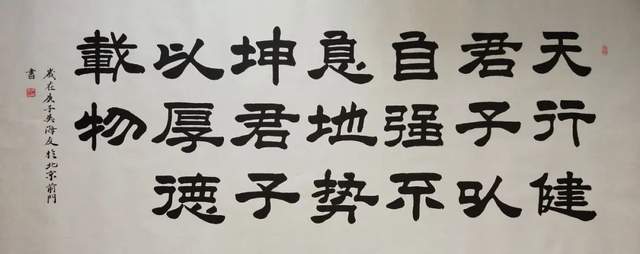 天行健
君子以
自强不
息地势
坤君子
以厚德
載物
歲在庚子吴海友於北京前門
書